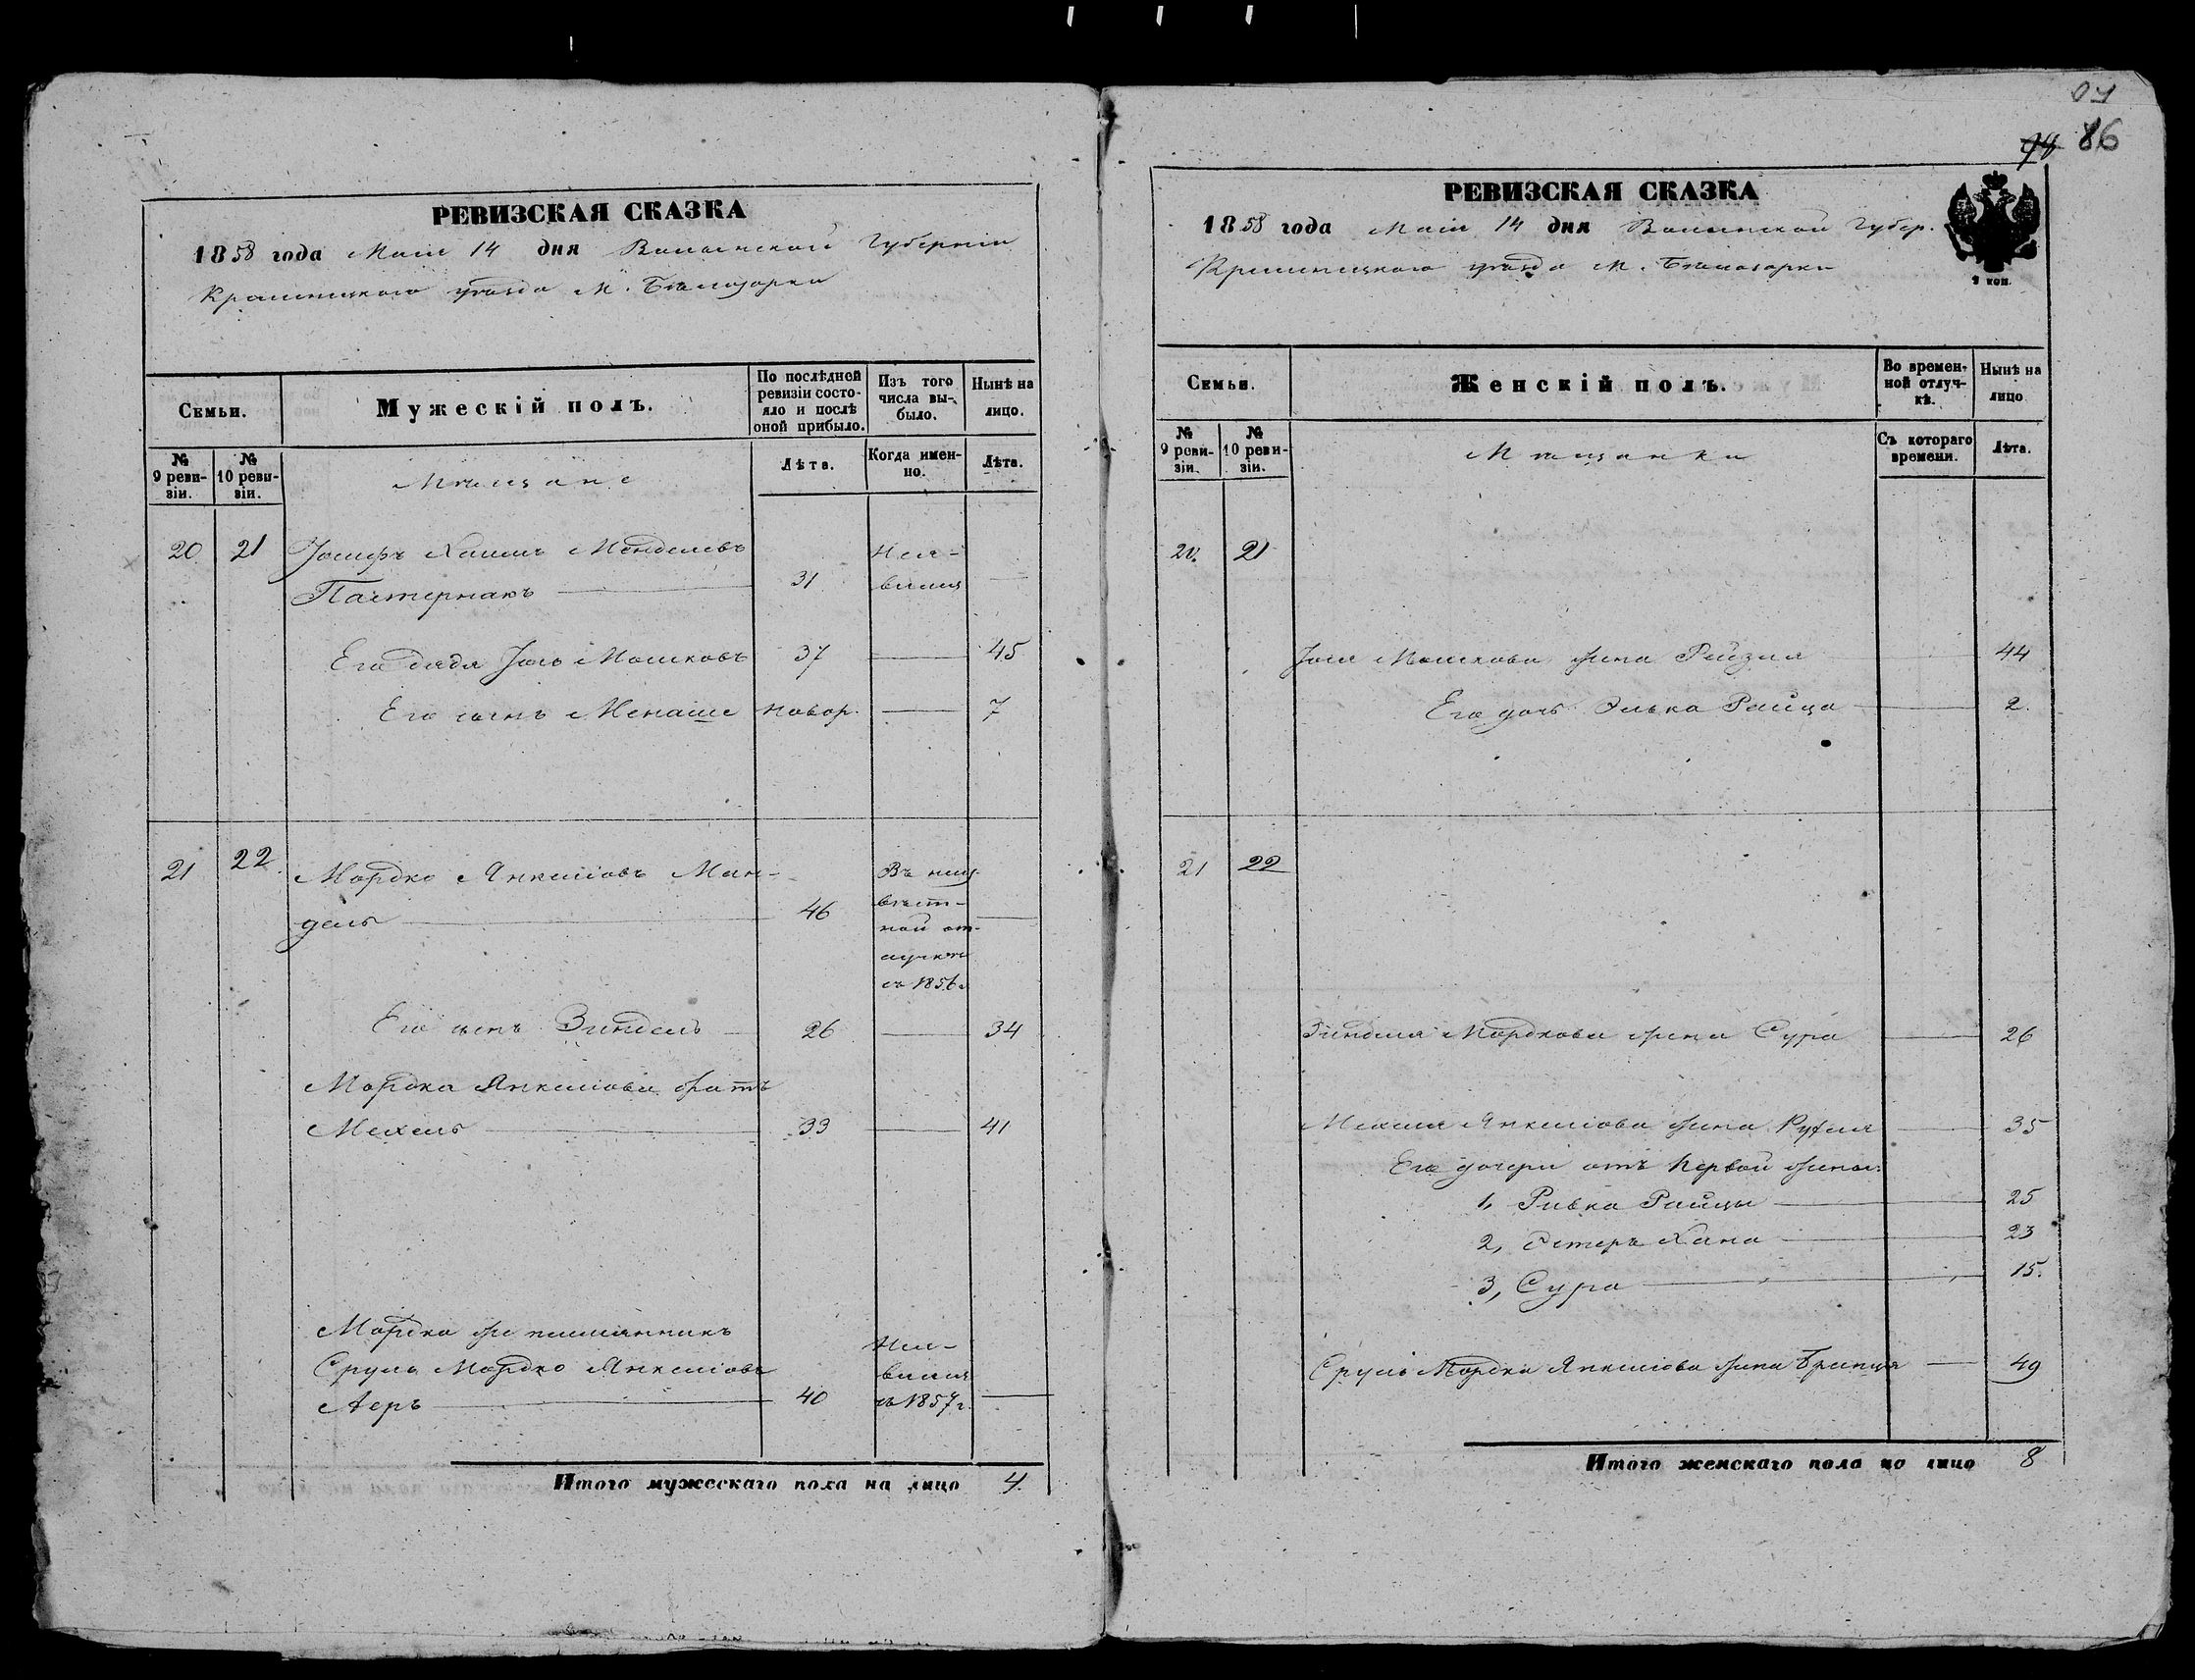 РЕВИЗСКАЯ СКАЗКА
1858 года Маія 14 дня Волынской Губерніи
Кременецкаго уѣзда М. Бѣлозорки
Семьи.
Мужескій полъ.
По послѣдней ревизіи состо-
яло и послѣ
оной прибыло.
Изъ того
числа вы-
было.
Нынѣ на
лицо.
№
9 реви-
зіи.
№
10 реви-
зіи.
Мѣщане
Лѣта.
Когда имен-
но.
Лѣта.
20 21 Іосифъ Хаимъ Менделевъ
Пастернакъ 31 Неявивш
Его дядя Іоль Мошковъ 37 45
Его сынъ Менаше новор. 7
21 22 Мордко Янкеліовъ Ман-
дель 46 Въ неиз-
вѣст-
ной от-
лучкѣ
съ 1856 г
Его сынъ Зиндель 26 34
Мордка Янкеліова братъ
Мехель 33 41
Мордка же племянникъ
Сруль Мордко Янкеліовъ
Аеръ 40 Нея-
вивш
съ 1857 г.
Итого мужескаго пола на лицо 4
86
РЕВИЗСКАЯ СКАЗКА
1858 года Маія 14 дня Волынской Губер.
Кременецкаго уѣзда М. Бѣлозорки
2 коп.
Семьи.
Женскій полъ.
Во времен-
ной отлуч-
кѣ.
Нынѣ на
лицо
№
9 реви-
зіи.
№
10 реви-
зіи.
Мѣщанки
Съ котораго
времени.
Лѣта.
20. 21
Іоля Мошкова жена Рейзля 44
Его дочь Элька Райца 2.
21 22
Зинделя Мордкова жена Сура 26
Мехеля Янкеліова жена Рухля 35
Его дочери отъ первой жены:
1, Ривка Райцы 25
2, Эстеръ Хана 23
3, Сура 15.
Сруль Мордка Янкеліова жена Бранця 49
Итого женскаго пола на лицо 8